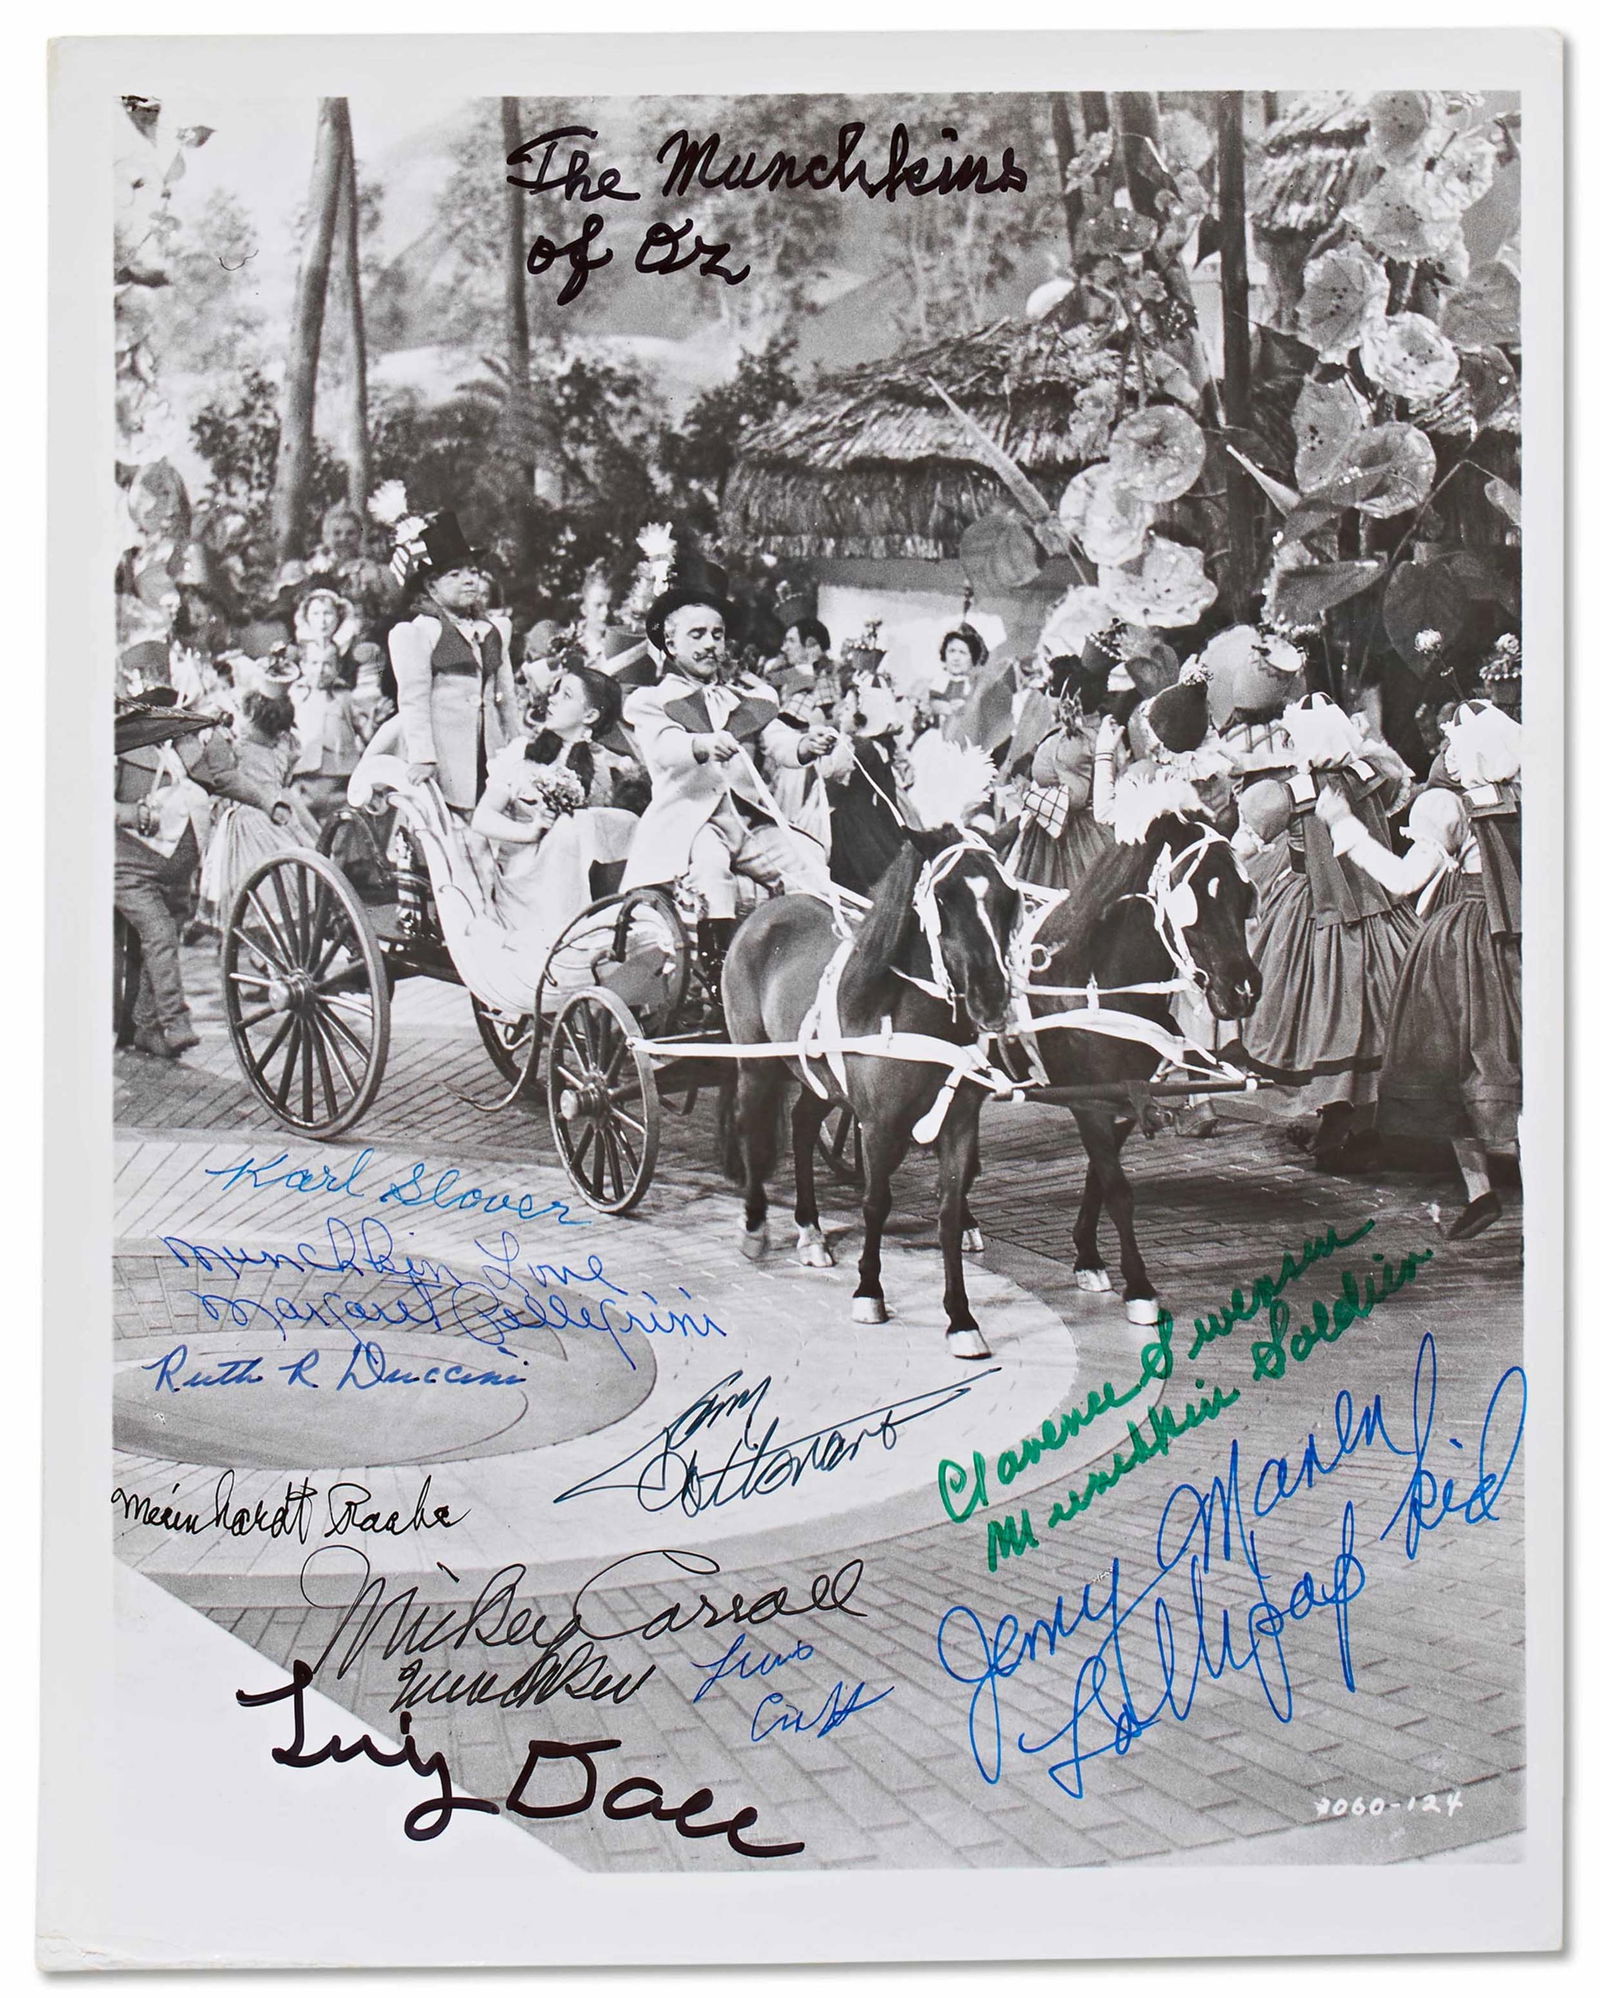 The Munchkins
of Oz
Karl Slover
Munchkin Love
Margaret Pellegrini
Ruth R Duccini
Clarence Swensen
Munchkin Soldier
Tiny
Doll
Jerry Maren
Lollipop kid
Meinhardt Raabe
Mickey Carroll
Munchkin
1060-124